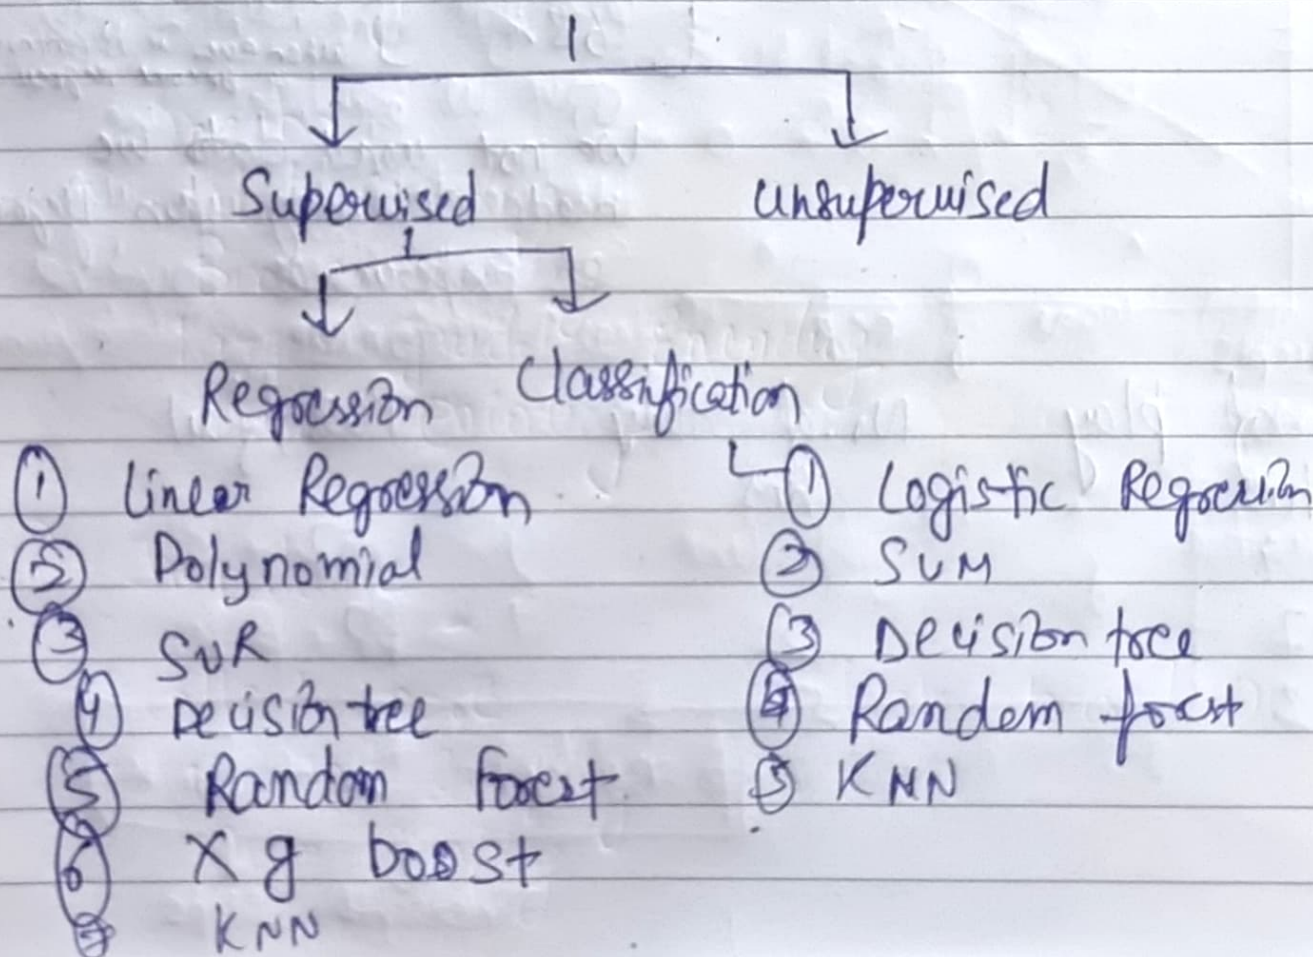 Supervised
unsupervised
Regression
Classification
① Linear Regression
② Polynomial
③ SVR
④ Decision tree
⑤ Random Forest
⑥ Xg boost
⑦ KNN
① Logistic Regression
② SVM
③ Decision tree
④ Random forest
⑤ KNN